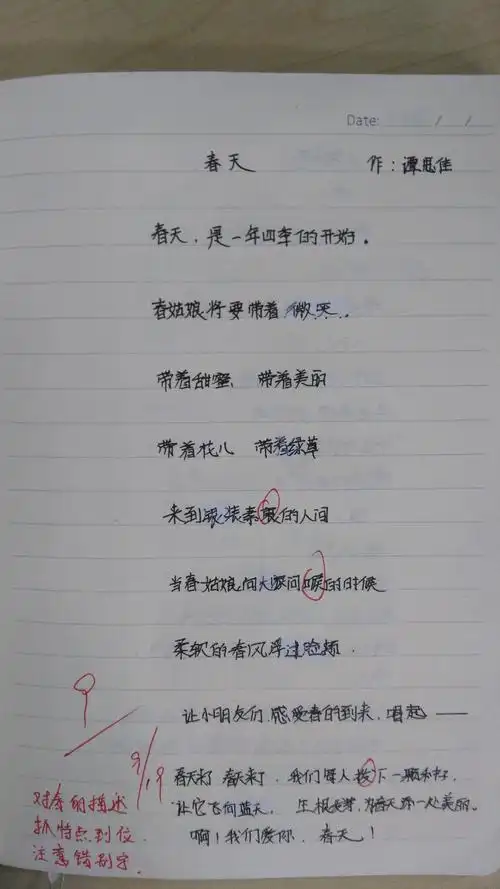 Date: / /
春天 作：谭思佳
春天，是一年四季的开始。
春姑娘将要带着微笑..
带着甜蜜 带着美丽
带着花儿 带着绿草
来到银装素裹的人间
当春姑娘向大家问候的时候
柔软的春风浮过脸颊.
让小朋友们感受春的到来，唱起——
春天来了 春天来了，我们每人 下一颗种籽，
让它飞向蓝天， 生根发芽，为春天添一处美丽。
啊！我们爱你，春天！
9/19
对春的描述
抓特点到位
注意错别字.